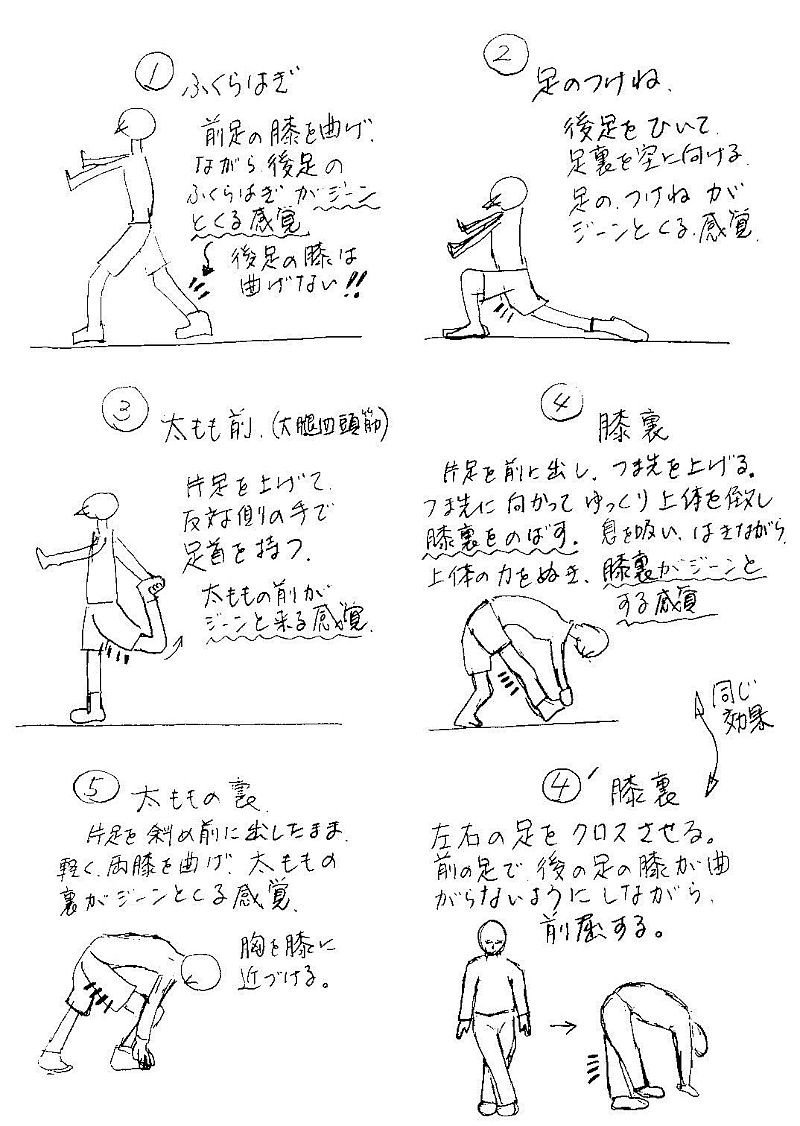 ① ふくらはぎ
前足の膝を曲げ、
ながら、後足の
ふくらはぎがジーン
とくる感覚
後足の膝は
曲げない!!
② 足のつけね、
後足をひいて、
足裏を空に向ける。
足のつけねが
ジーンとくる感覚
③ 太もも前、(大腿四頭筋)
片足を上げて、
反対側の手で
足首を持つ、
太ももの前が
ジーンと来る感覚
④ 膝裏
片足を前に出し、つま先を上げる。
つま先に向かってゆっくり上体を倒し
膝裏をのばす。息を吸い、はきながら、
上体の力をぬき、膝裏がジーンと
する感覚
同じ
効果
⑤ 太ももの裏
片足を斜め前に出したまま、
軽く、両膝を曲げ、太ももの
裏がジーンとくる感覚
胸を膝に
近づける。
④' 膝裏
左右の足をクロスさせる。
前の足で、後の足の膝が曲
がらないようにしながら、
前屈する。